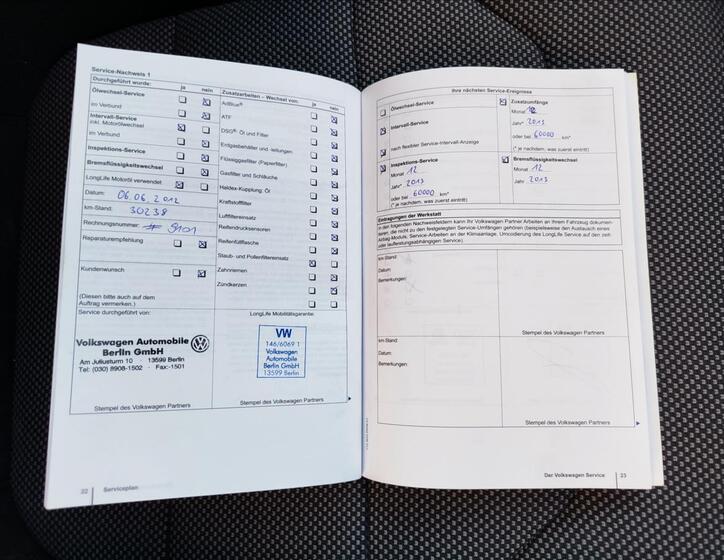 Service-Nachweis 1
Durchgeführt wurde: ja nein
Ölwechsel-Service
im Verbund
Intervall-Service
inkl. Motorölwechsel
im Verbund
Inspektions-Service
Bremsflüssigkeitswechsel
LongLife Motoröl verwendet
Datum: 06.06.2012
km-Stand: 30238
Rechnungsnummer: # 9101
Reparaturempfehlung
Kundenwunsch
(Diesen bitte auch auf dem
Auftrag vermerken.)
Service durchgeführt von:
Volkswagen Automobile
Berlin GmbH
Am Juliusturm 10 · 13599 Berlin
Tel: (030) 8908-1502 · Fax:-1501
Stempel des Volkswagen Partners
Zusatzarbeiten – Wechsel von: ja nein
AdBlue®
ATF
DSG®- Öl und Filter
Erdgasbehälter und -leitungen
Flüssiggasfilter (Papierfilter)
Gasfilter und Schläuche
Haldex-Kupplung: Öl
Kraftstofffilter
Luftfiltereinsatz
Reifendrucksensoren
Reifenfüllflasche
Staub- und Pollenfiltereinsatz
Zahnriemen
Zündkerzen
LongLife Mobilitätsgarantie:
VW
146/6069 1
Volkswagen
Automobile
Berlin GmbH
13599 Berlin
Stempel des Volkswagen Partners
22 Serviceplan
Ihre nächsten Service-Ereignisse
Ölwechsel-Service
Intervall-Service
nach flexibler Service-Intervall-Anzeige
Zusatzumfänge
Monat 12
Jahr* 2013
oder bei 60000 km*
(* je nachdem, was zuerst eintritt)
Inspektions-Service
Monat 12
Jahr* 2013
oder bei 60000 km*
(* je nachdem, was zuerst eintritt)
Bremsflüssigkeitswechsel
Monat 12
Jahr 2013
Eintragungen der Werkstatt
In den folgenden Nachweisfeldern kann Ihr Volkswagen Partner Arbeiten an Ihrem Fahrzeug dokumen-
tieren, die nicht zu den festgelegten Service-Umfängen gehören (beispielsweise den Austausch eines
Airbag-Moduls, Service-Arbeiten an der Klimaanlage, Umcodierung des LongLife Service auf den zeit-
oder laufleistungsabhängigen Service).
km-Stand:
Datum:
Bemerkungen:
Stempel des Volkswagen Partners
km-Stand:
Datum:
Bemerkungen:
Stempel des Volkswagen Partners
Der Volkswagen Service 23